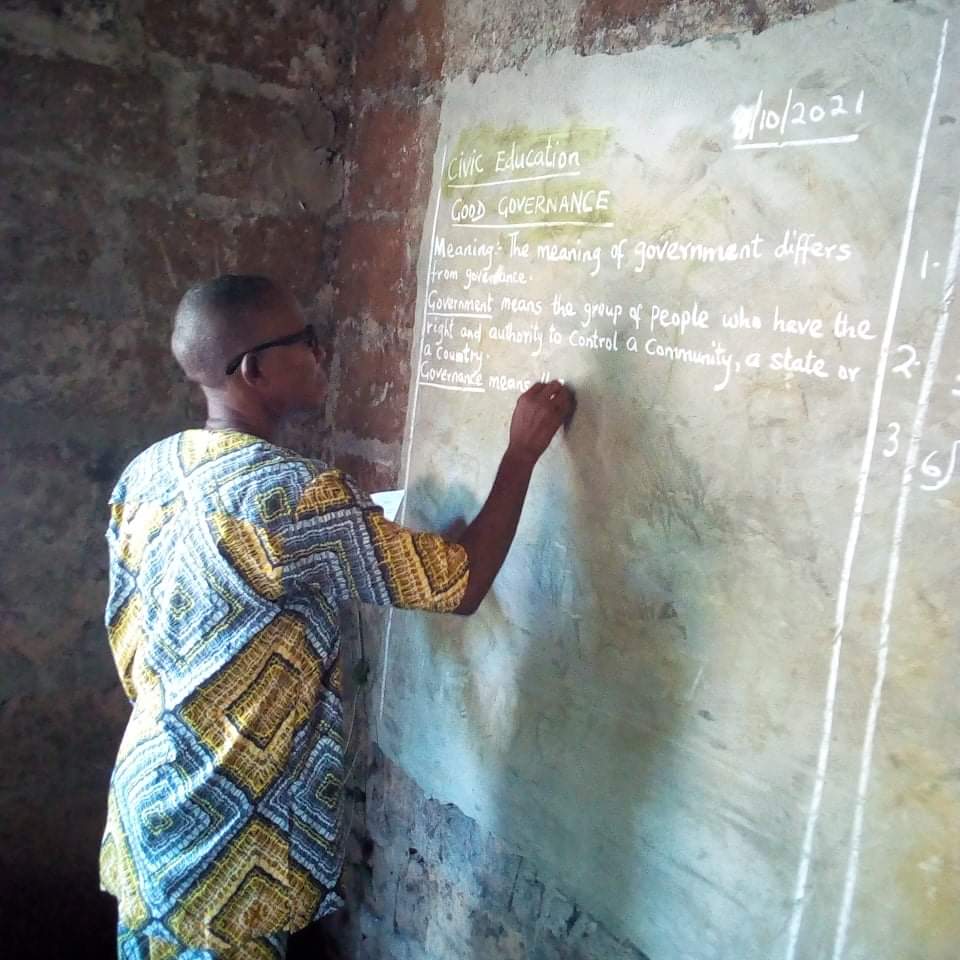 /10/2021
Civic Education
GOOD GOVERNANCE
Meaning:- The meaning of government differs
from governance.
Government means the group of people who have the
right and authority to control a community, a state or
a country.
Governance means
1.
2.
3
6